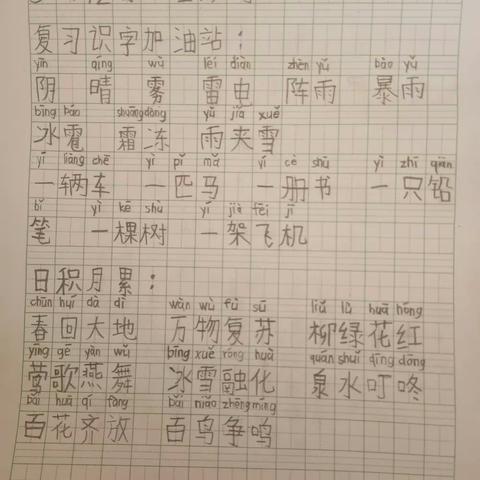 复习识字加油站：
yīn qíng wù léi diàn zhèn yǔ bào yǔ
阴 晴 雾 雷电 阵雨 暴雨
bīng báo shuāng dòng yǔ jiā xuě
冰雹 霜冻 雨夹雪
yí liàng chē yì pǐ mǎ yí cè shū yì zhī qiān
一辆车 一匹马 一册书 一只铅
bǐ yì kē shù yí jià fēi jī
笔 一棵树 一架飞机
日积月累：
chūn huí dà dì wàn wù fù sū liǔ lǜ huā hóng
春回大地 万物复苏 柳绿花红
yīng gē yàn wǔ bīng xuě róng huà quán shuǐ dīng dōng
莺歌燕舞 冰雪融化 泉水叮咚
bǎi huā qí fàng bǎi niǎo zhēng míng
百花齐放 百鸟争鸣